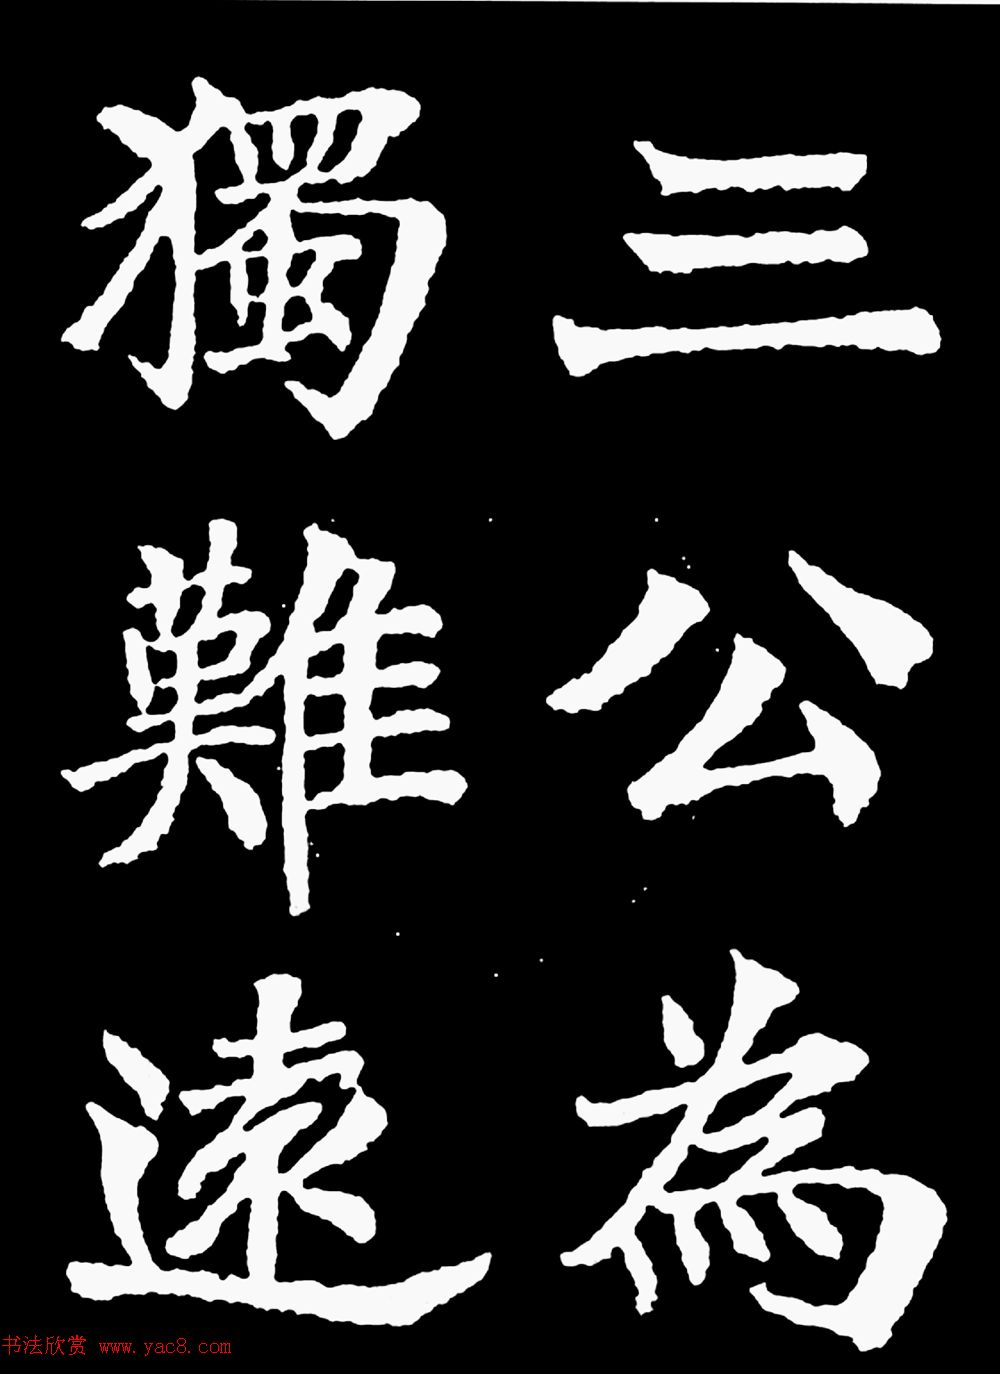 三公為
獨難遠
书法欣赏 www.yac8.com